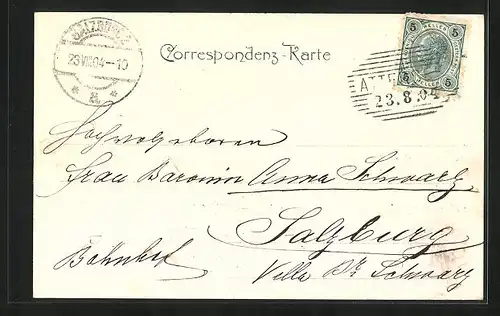 SALZBURG 2
23 VIII 04-10
* a *
Correspondenz-Karte
5 HELLER 5
5 HELLER 5
ATTE
23.8.04
Hochwolgeboren
Frau Baronin Anna Schwarz
Salzburg
Bahnhof
Villa Br Schwarz